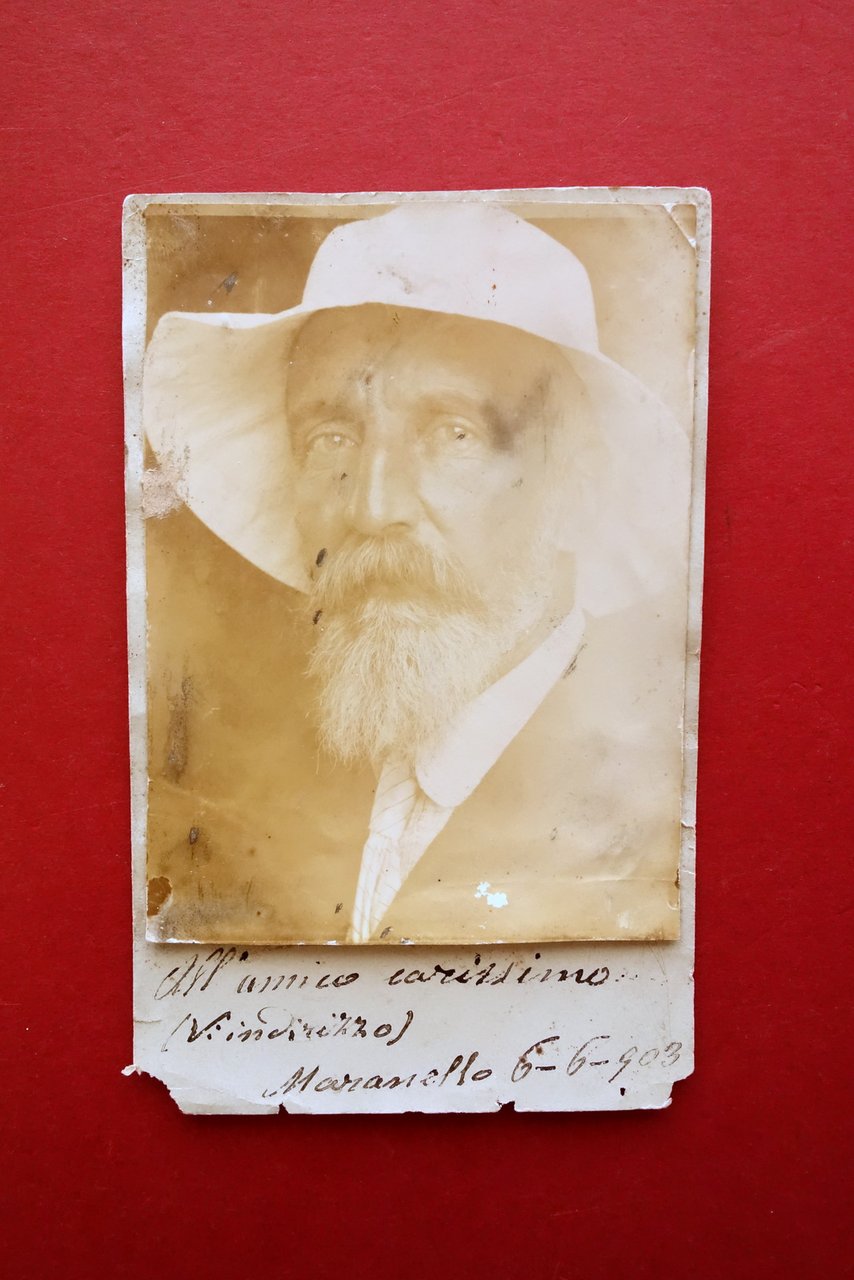 All'amico carissimo
(V. indirizzo)
Maranello 6-6-903